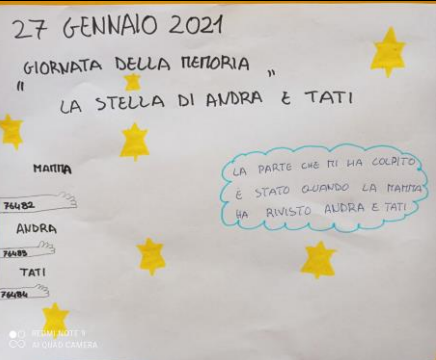 27 GENNAIO 2021
GIORNATA DELLA MEMORIA
" LA STELLA DI ANDRA E TATI "
MAMMA
76482
ANDRA
76483
TATI
76484
LA PARTE CHE MI HA COLPITO
È STATO QUANDO LA MAMMA
HA RIVISTO ANDRA E TATI
REDMI NOTE 9
AI QUAD CAMERA